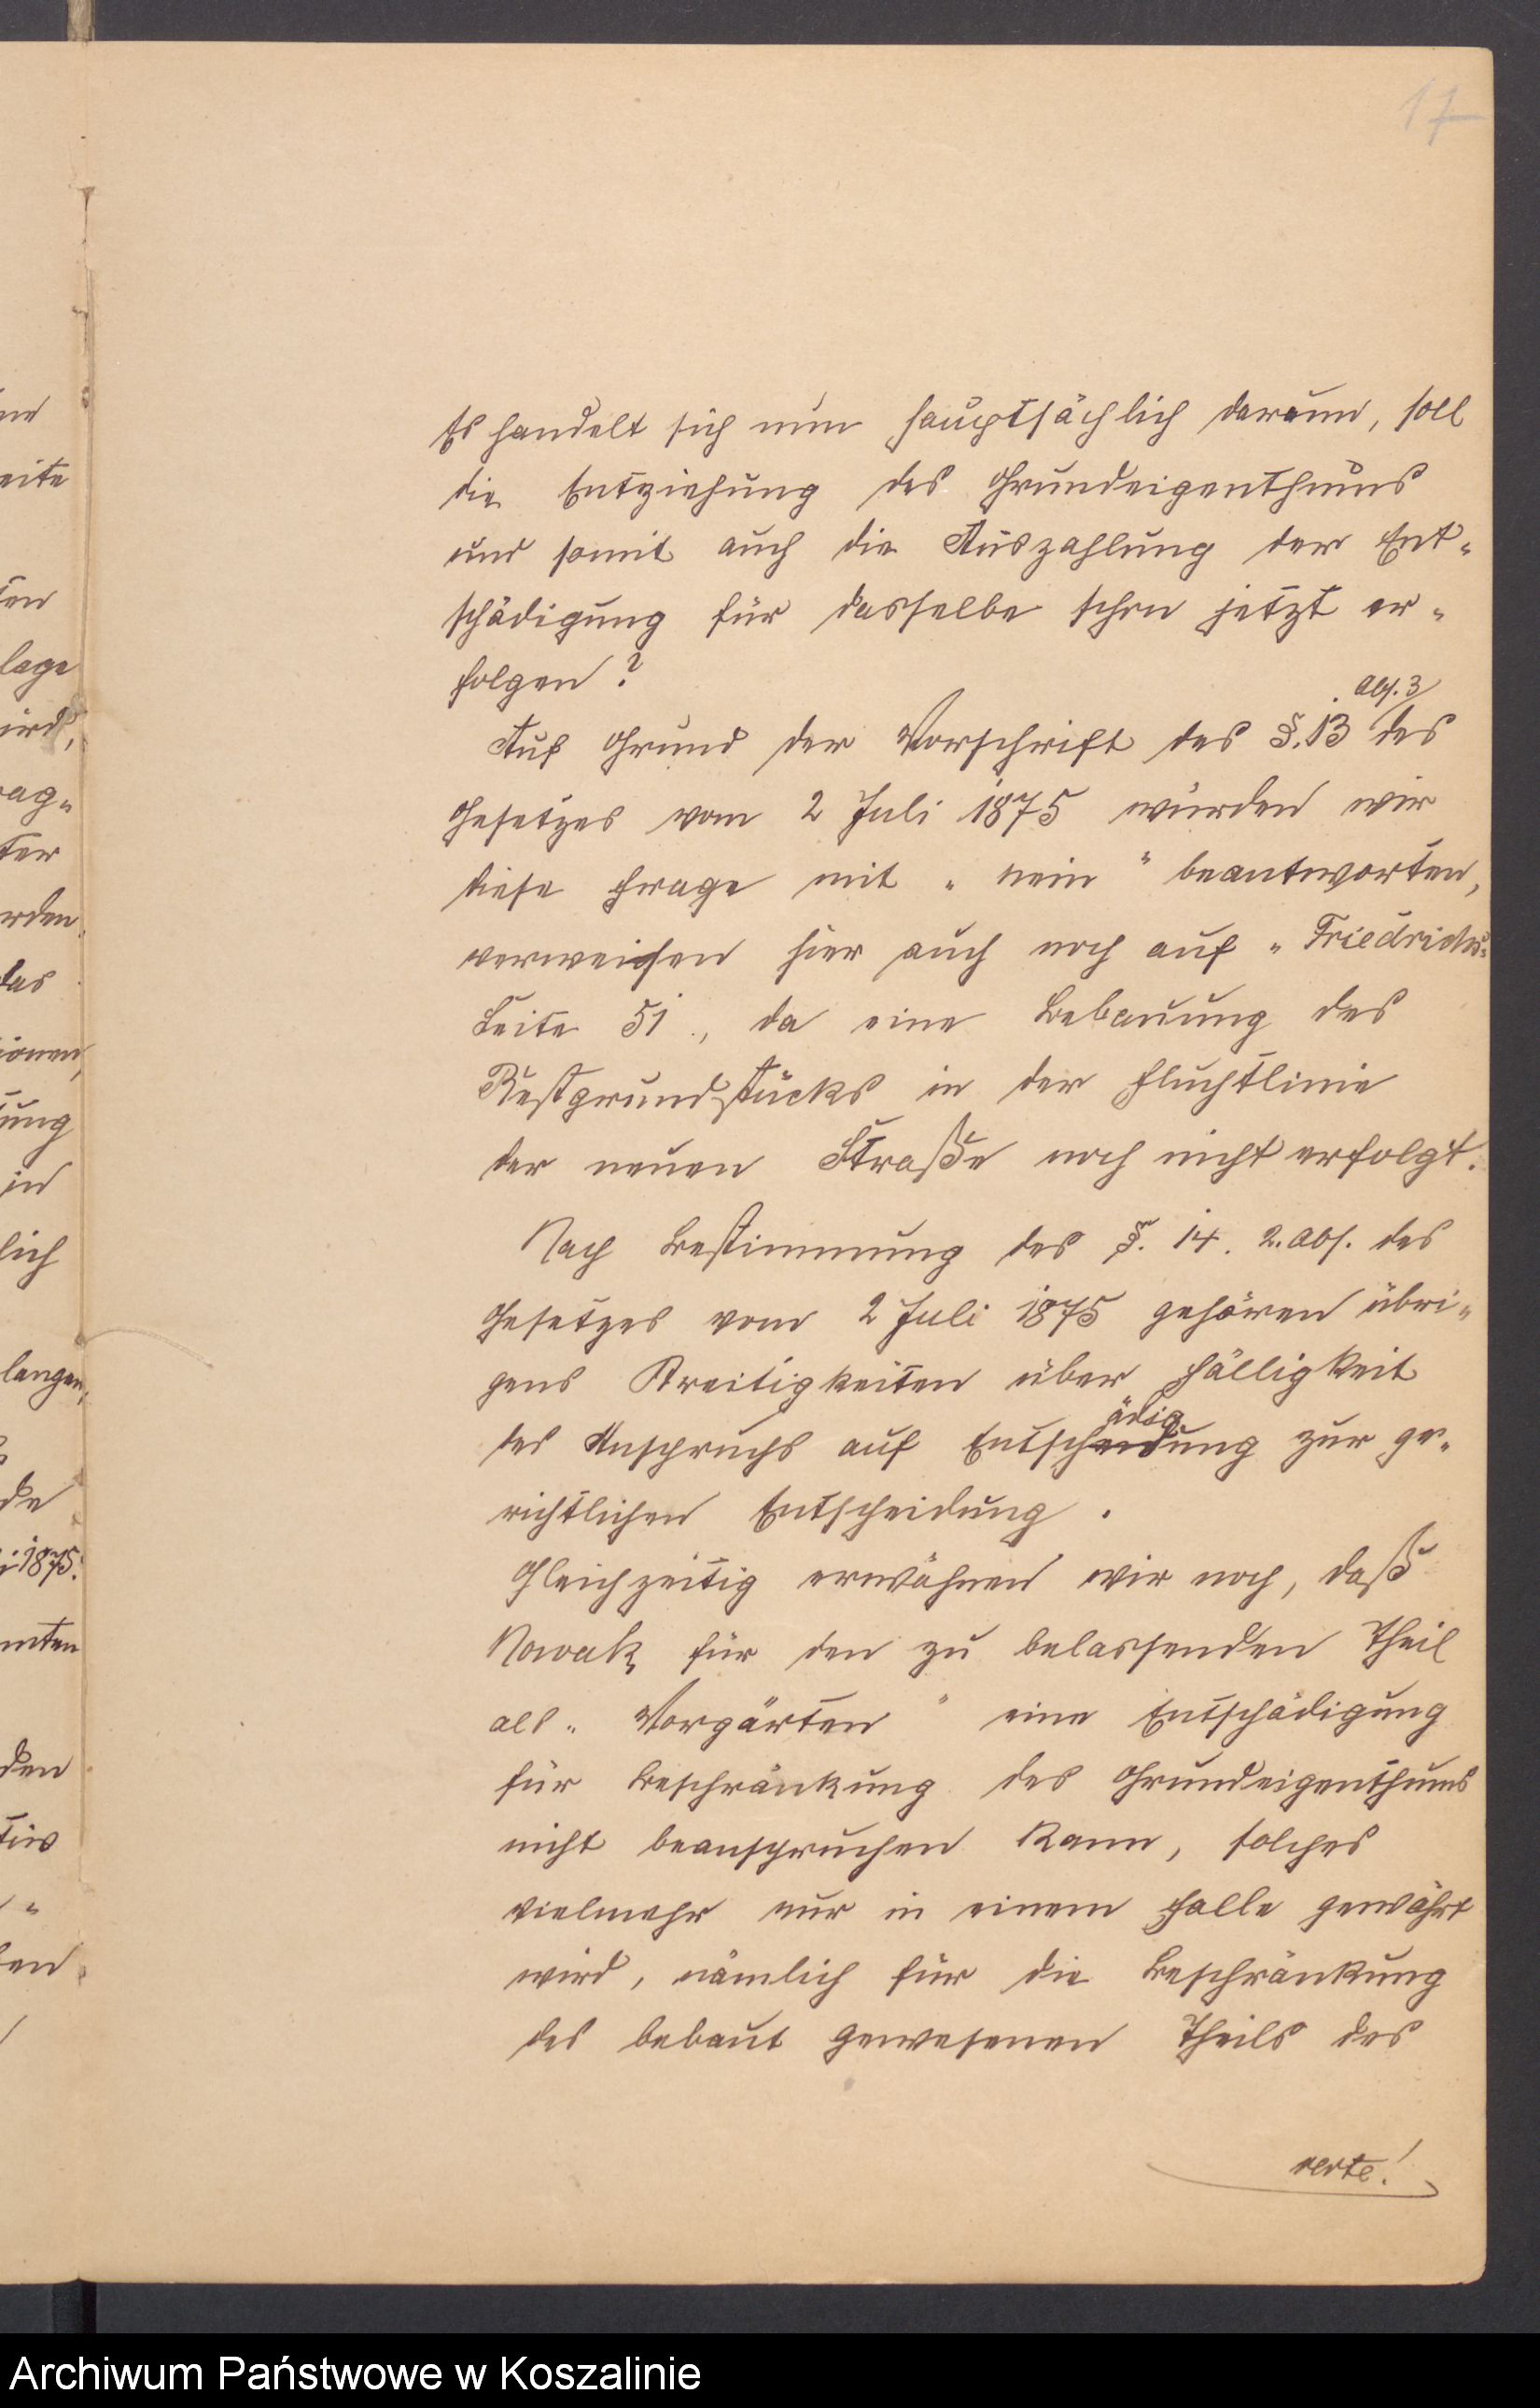 17
Es handelt sich nun hauptsächlich darum, soll
die Entziehung des Grundeigenthums
und somit auch die Auszahlung der Ent-
schädigung für dasselbe schon jetzt er-
folgen?
Abs. 3
Auf Grund der Vorschrift des §. 13 des
Gesetzes vom 2 Juli 1875 würden wir
diese Frage mit „nein“ beantworten,
verweisen hier auch noch auf „Friedrichs-
Seite 51., da eine Bebauung des
Restgrundstücks in der Fluchtlinie
der neuen Straße noch nicht erfolgt.
Nach Bestimmung des §. 14. 2. Abs. des
Gesetzes vom 2 Juli 1875 gehören übri-
gens Streitigkeiten über Fälligkeit
ädig
des Anspruchs auf Entscheidung zur ge-
richtlichen Entscheidung.
Gleichzeitig erwähnen wir noch, daß
Nowak für den zu belassenden Theil
als „Vorgärten“ eine Entschädigung
für Beschränkung des Grundeigenthums
nicht beanspruchen kann, solches
vielmehr nur in einem Falle gewährt
wird, nämlich für die Beschränkung
des bebaut gewesenen Theils des
verte!
eite
lage
ird,
rag-
ter
rden.
das
ionen,
ung
in
lich
langen,
de
i 1875.
mten
den
Archiwum Państwowe w Koszalinie